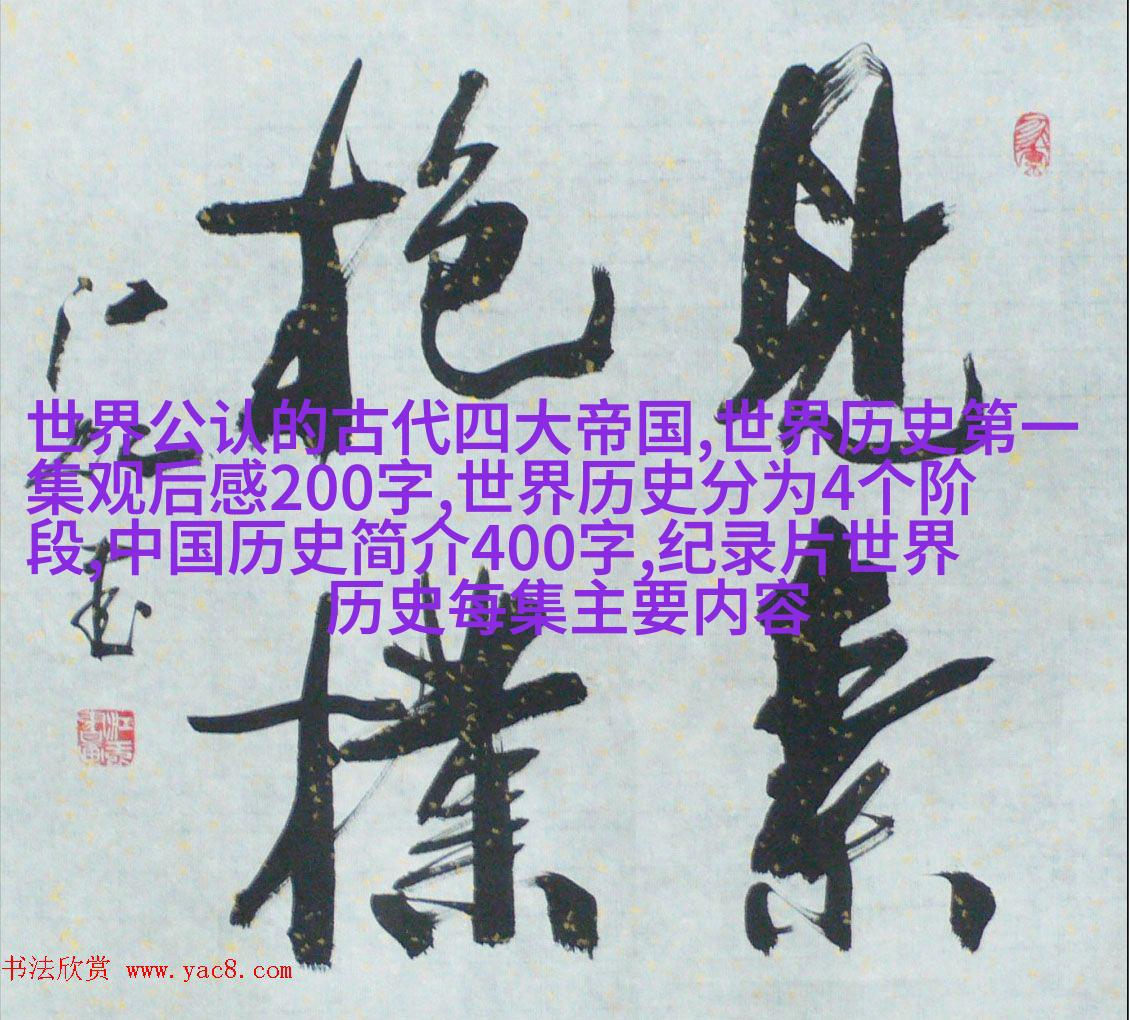 見素
抱樸
世界公认的古代四大帝国,世界历史第一
集观后感200字,世界历史分为4个阶
段,中国历史简介400字,纪录片世界
历史每集主要内容
书法欣赏 www.yac8.com